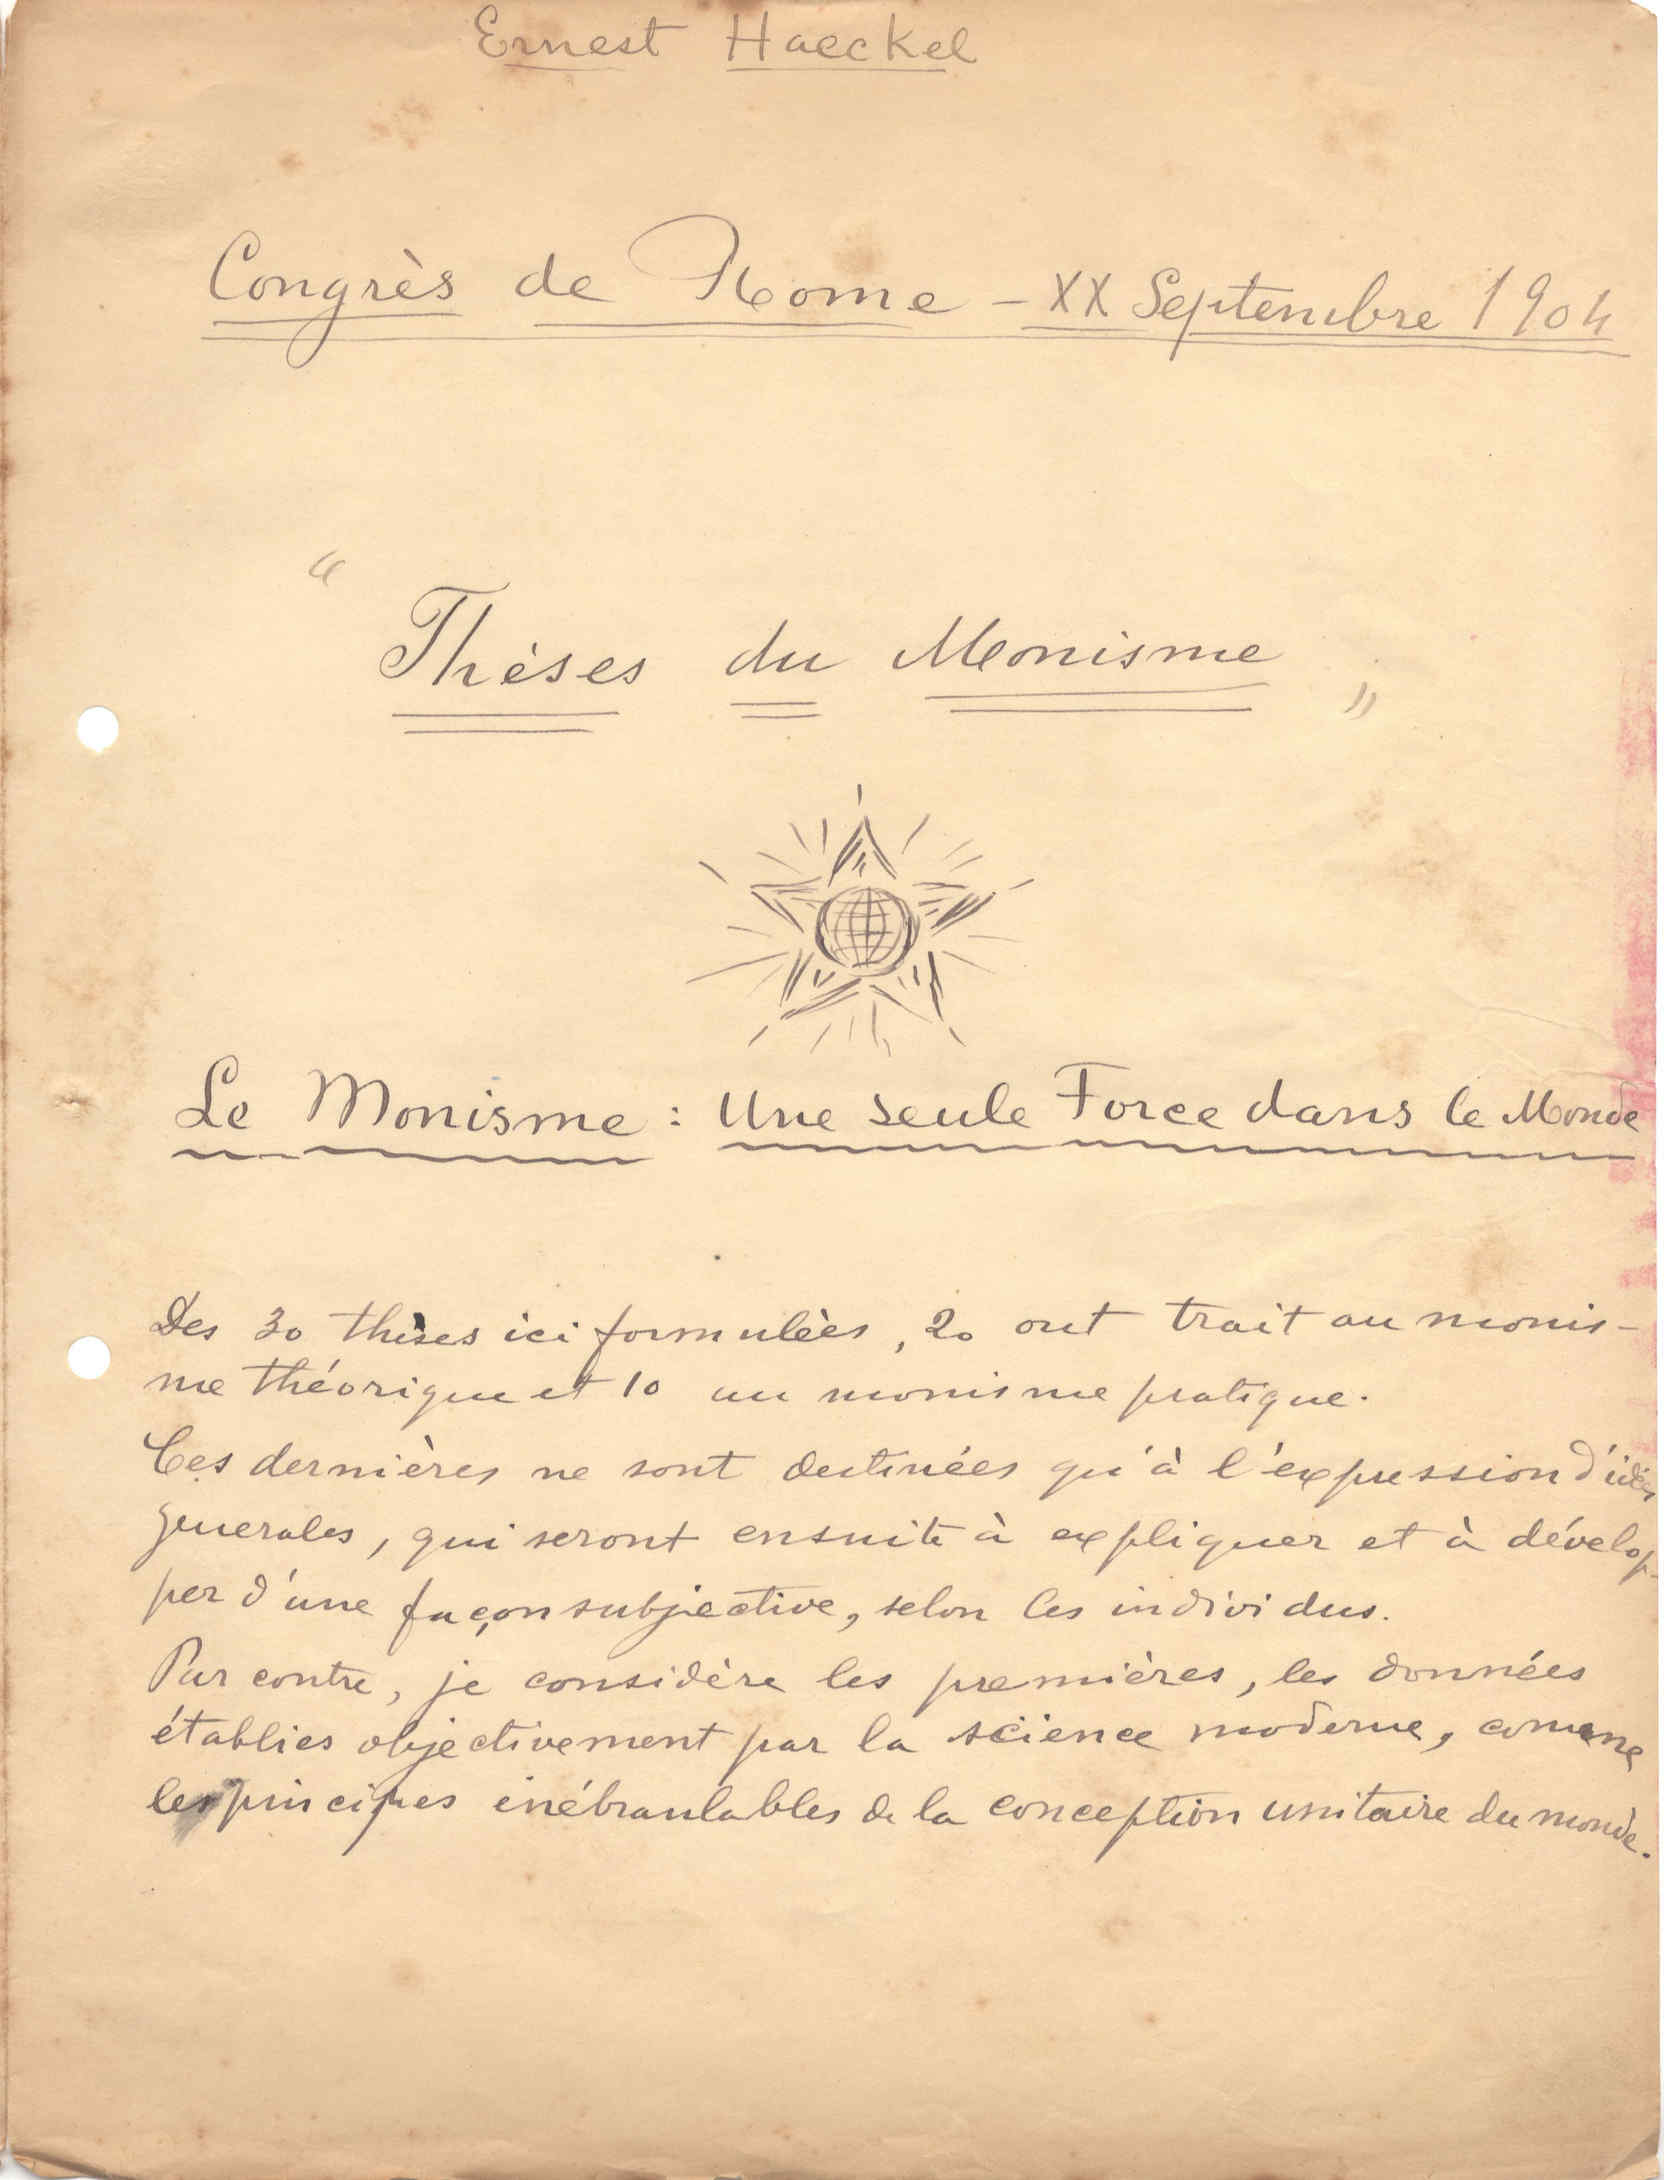 Ernest Haeckel
Congrès de Rome - XX Septembre 1904
"
Thèses du Monisme
"
Le Monisme : Une seule Force dans le Monde
Des 30 thèses ici formulèes, 20 ont trait au monis-
me théorique et 10 au monisme pratique.
Ces dernières ne sont destinées qu'à l'expression d'idées
generales, qui seront ensuite à expliquer et à dévelop-
per d'une façon subjective, selon les individus.
Par contre, je considère les premières, les données
établies objectivement par la science moderne, comme
les principes inébranlables de la conception unitaire du monde.